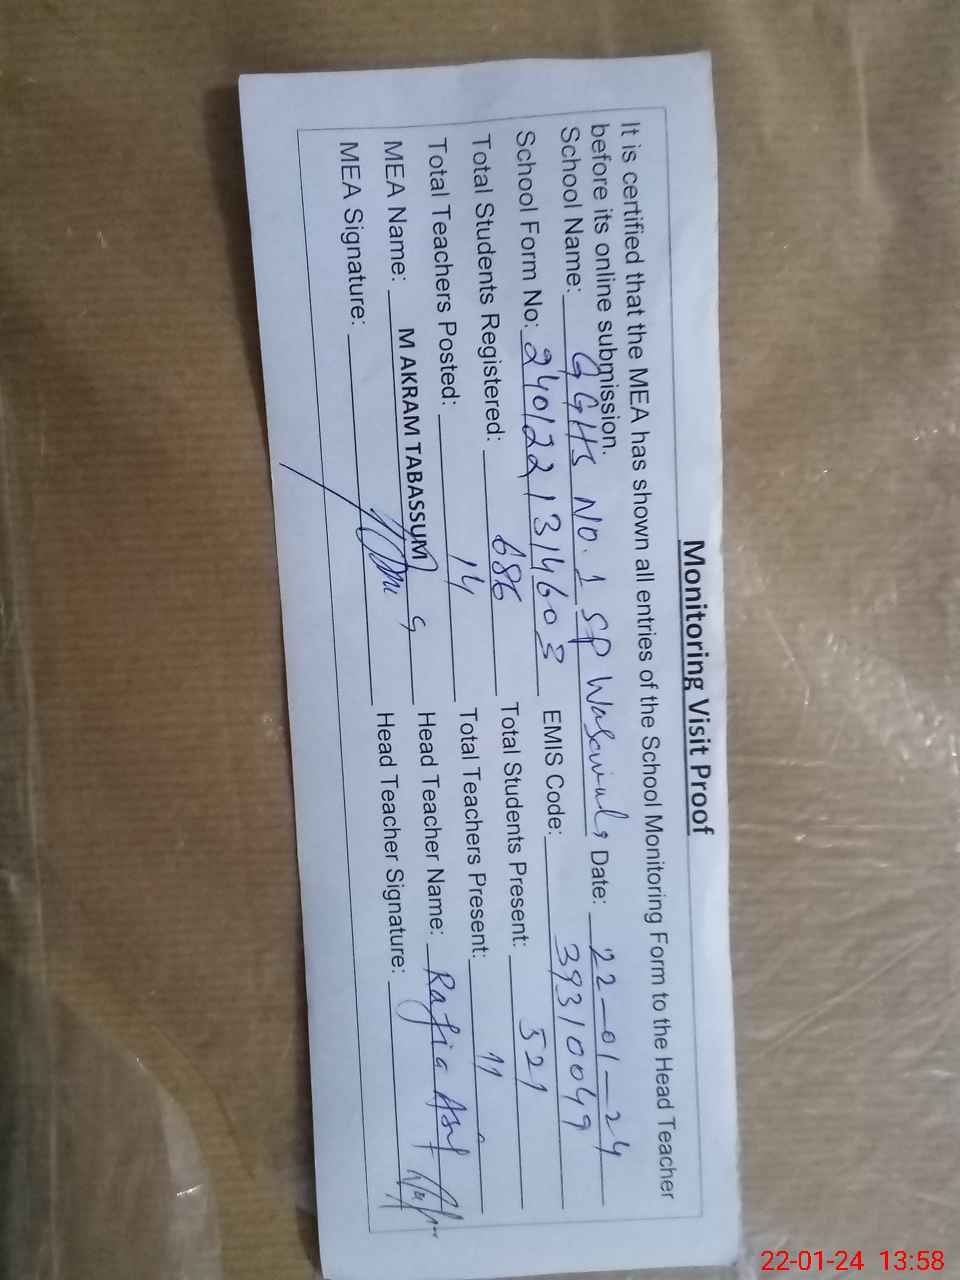 Monitoring Visit Proof
It is certified that the MEA has shown all entries of the School Monitoring Form to the Head Teacher
before its online submission.
School Name: GGHS No. 1 SP Date: 22-01-24
School Form No: 2401221314603 EMIS Code: 39310049
Total Students Registered: 686 Total Students Present: 521
Total Teachers Posted: 14 Total Teachers Present: 11
MEA Name: M AKRAM TABASSUM Head Teacher Name: Rafia
MEA Signature: Head Teacher Signature:
22-01-24 13:58